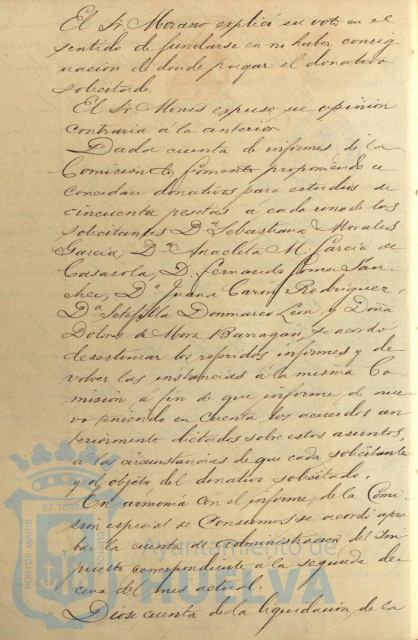 El Sr. Morano explicó su voto en el
sentido de fundarse en no haber consig
nación de donde pagar el donativo
solicitado.
El Sr. Mines expuso su opinión
contraria a la anterior.
Dada cuenta de informes de la
Comisión de Fomento proponiendo se
concedan donativos para estudios de
cincuenta pesetas á cada una de los
solicitantes Dª Sebastiana Morales
García, Dª Anacleta M. García de
Casasola, D. Fernando Sán
chez, Dª Juana Carón Rodríguez,
Dª Donmarco León y Doña
Dolores de Mora Barragán, se acordó
desestimar los referidos informes y de
volver las instancias á la misma Co
misión a fin de que informe de nue
vo teniendo en cuenta los acuerdos an
teriormente dictados sobre estos asuntos,
a las circunstancias de que cada solicitante
y el objeto del donativo solicitado.
En armonía con el informe de la Comi
sión especial de Consumos se acordó apro
bar la cuenta de Administración del Im
puesto correspondiente a la segunda de
cena del mes actual.
Diose cuenta de la liquidación de la
PORTUS MARIS
ET TERRÆ
Ayuntamiento de
HUELVA